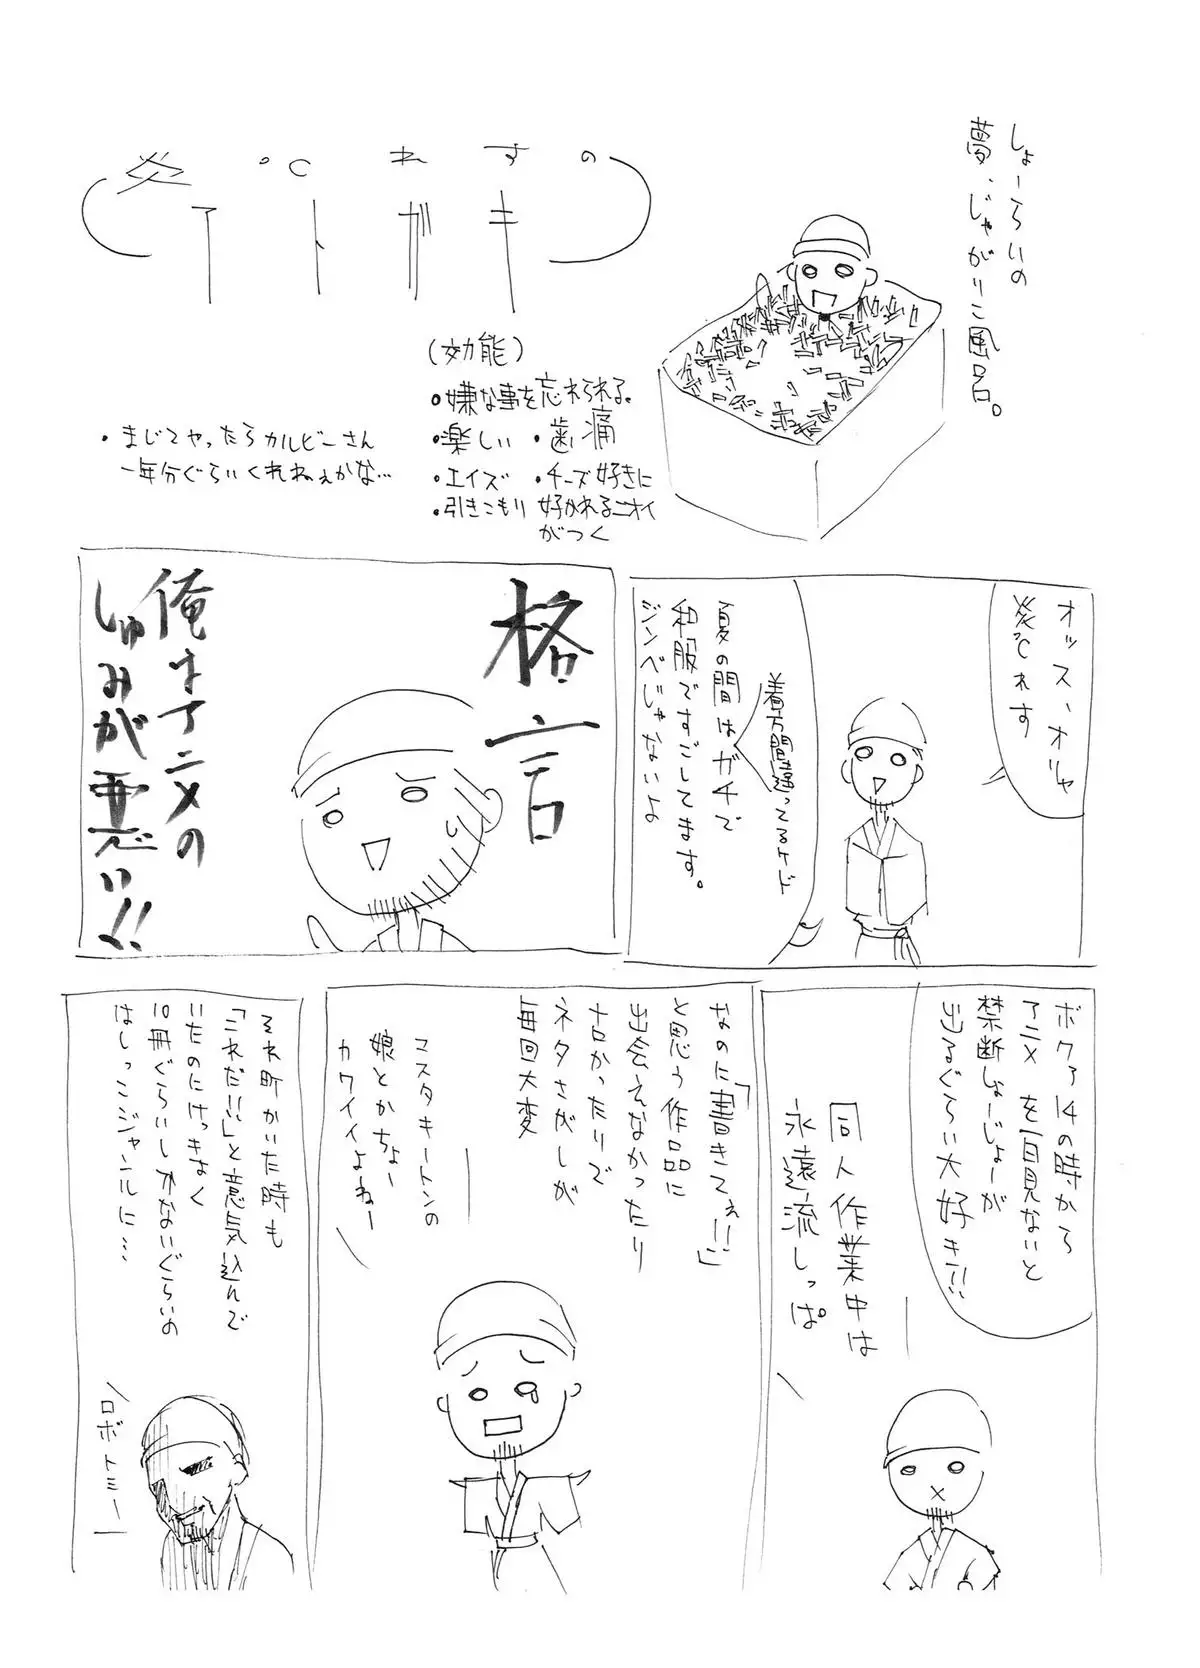 しょーらいの
夢、じゃがりこ風呂。
炎℃れすの
アトガキ
(効能)
・嫌な事を忘れられる。
・楽しい ・歯痛
・エイズ ・チーズ好きに
・引きこもり 好かれるニオイ
がつく
・まじでやったらカルビーさん
一年分ぐらいくれねぇかな…
オッス、オリャ
炎℃れす
着方間違ってるケド
夏の間はガチで
和服ですごしてます。
ジンベじゃないよ
格言
俺はアニメの
しゅみが悪い!!
ボクァ14の時から
アニメを一日見ないと
禁断しょーじょーが
出るぐらい大好き!!
同人作業中は
永遠流しっぱ。
なのに「書きてぇ!!」
と思う作品に
出会えなかったり
ナロかったりで
ネタさがしが
毎回大変
コスタキートンの
娘とかちょー
カワイイよねー
それ町かいた時も
「これだ!!」と意気込んで
いたのにけっきょく
10冊ぐらいしかないぐらいの
はしっこジャンルに…
ロボトミー